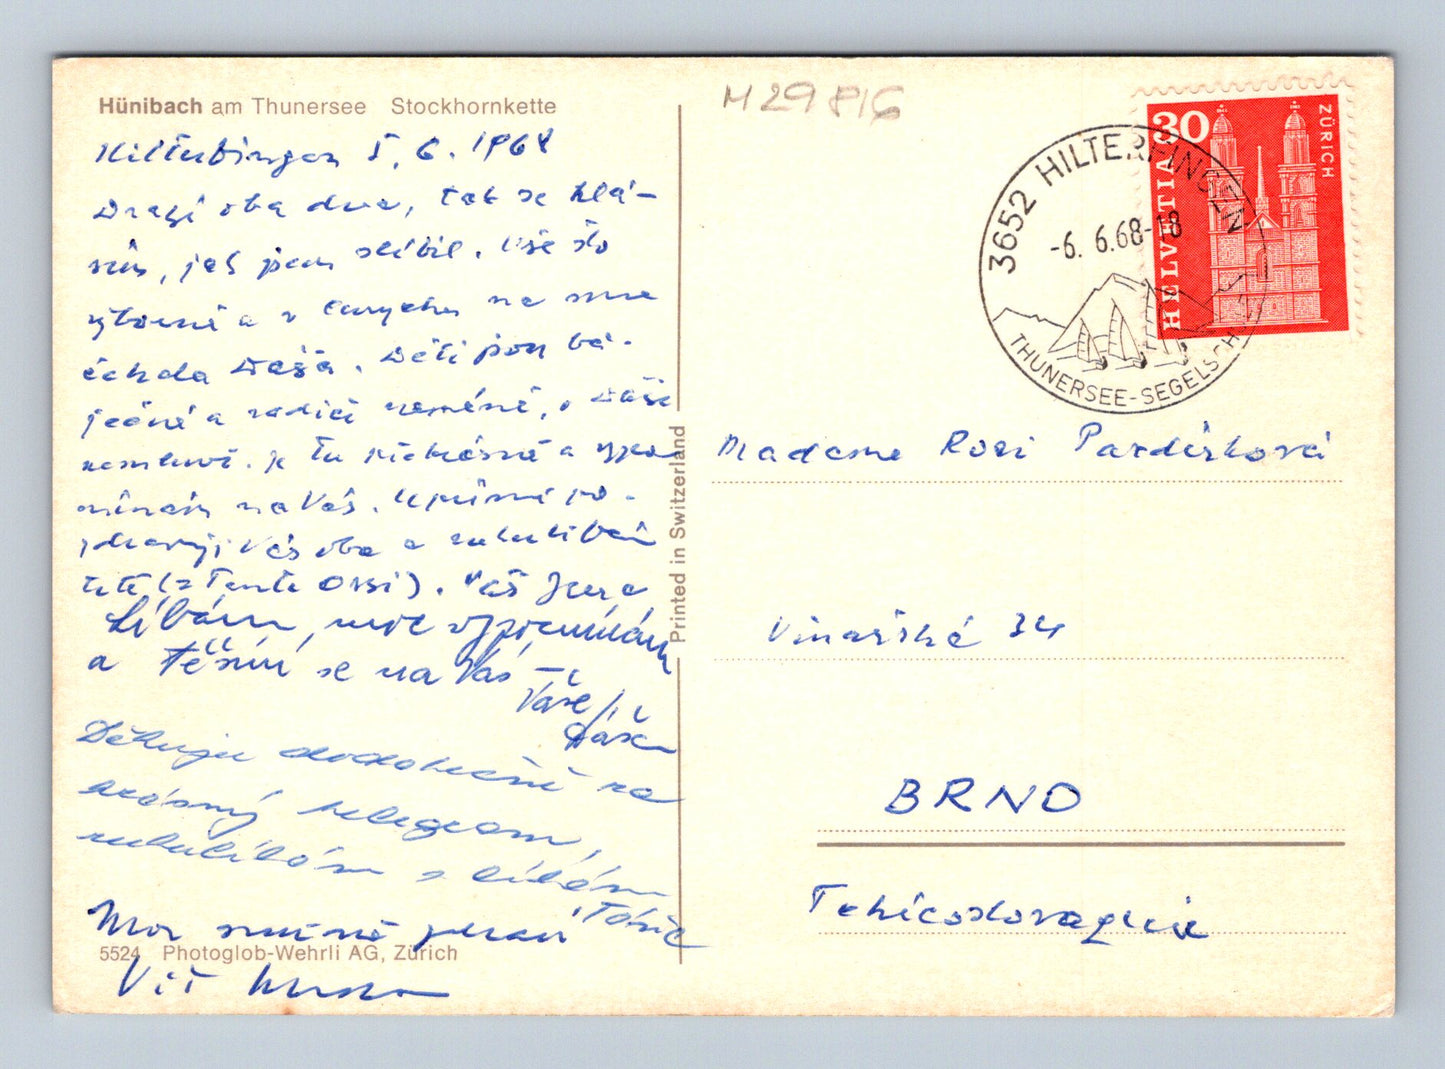 Hünibach am Thunersee Stockhornkette
Hilterfingen 5. 6. 1968
Drazí oba dva, tak se hlá-
sím, jak jsem slíbil. Vše šlo
výborně a v Curychu na mne
čekala Dáša. Děti jsou bá-
ječné a rodiče neméně, o Dáše
nemluvě. Je tu překrásně a vzpo
mínám na Vás. Upřímně po-
zdravuji Vás oba a rukulíbám
tetě (= Tante Ossi). Váš
Líbám, moc vzpomínám
a těším se na Vás –
Vaše
Dáša
Děkuji dodatečně za
krásný telegram,
rukulíbám a líbám
Moc srdečně zdraví
Vít
5524 Photoglob-Wehrli AG, Zürich
Printed in Switzerland
M29816
3652 HILTERFINGEN
-6. 6.68-18
THUNERSEE-SEGELSCH
30
HELVETIA
ZÜRICH
Madame Rosi Pardírková
Vinařská 34
BRNO
Tchécoslovaquie